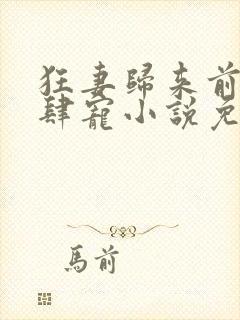 狂妻歸来前
肆寵小説免
馬前